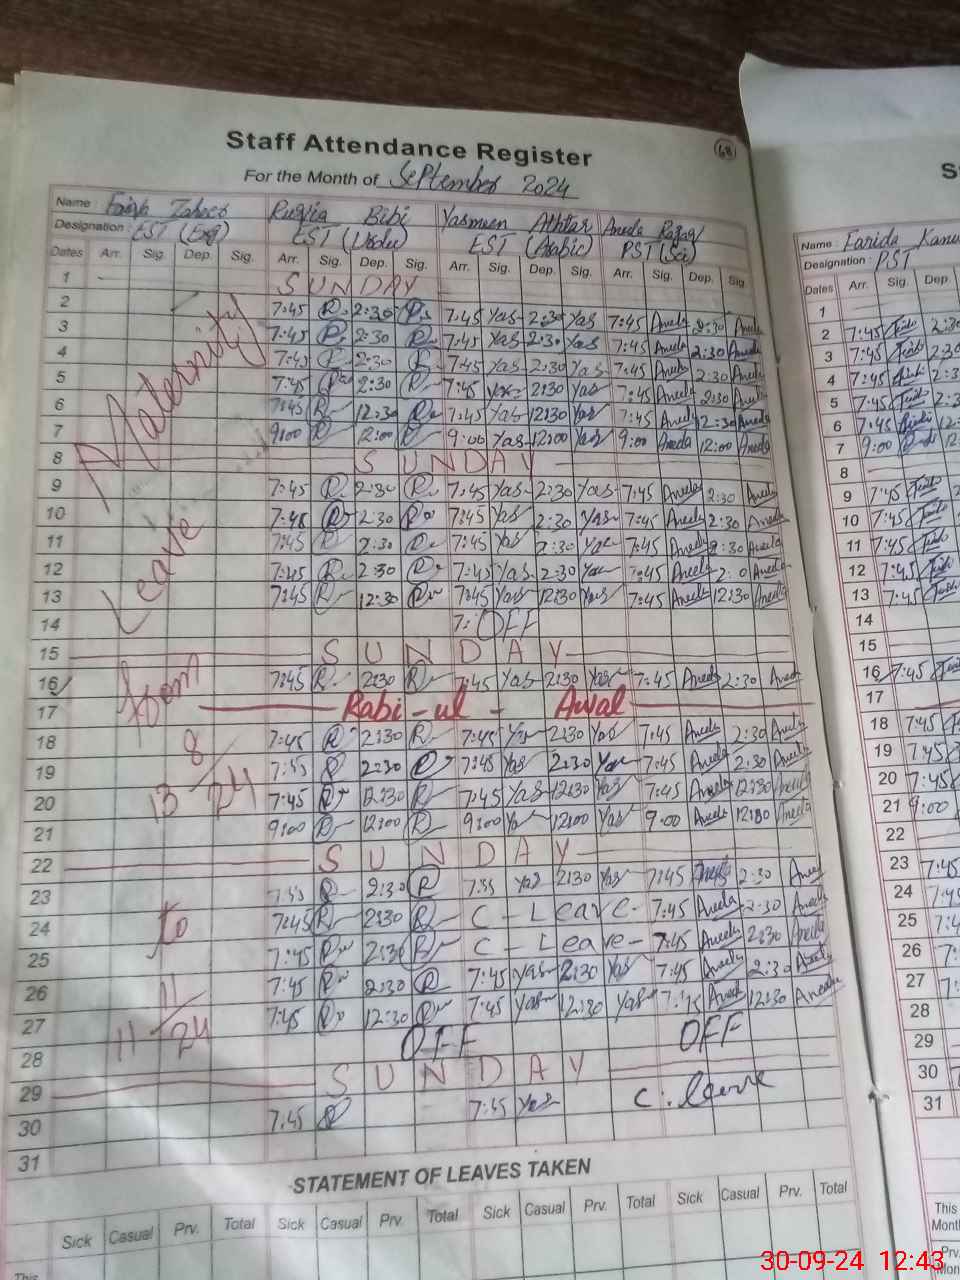 Staff Attendance Register
68
For the Month of September 2024
Name : Ruqia Bibi Yasmeen Akhtar Aneela Razaq
Designation : EST (Eng) EST (Urdu) EST (Arabic) PST (Sci)
Dates Arr. Sig. Dep. Sig. Arr. Sig. Dep. Sig. Arr. Sig. Dep. Sig. Arr. Sig. Dep. Sig.
1 SUNDAY
2 7:45 R 2:30 R 7:45 Yas 2:30 Yas 7:45 Aneela 2:30 Aneela
3 7:45 R 2:30 R 7:45 Yas 2:30 Yas 7:45 Aneela 2:30 Aneela
4 7:45 R 2:30 R 7:45 Yas 2:30 Yas 7:45 Aneela 2:30 Aneela
5 7:45 R 2:30 R 7:45 Yas 2:30 Yas 7:45 Aneela 2:30 Aneela
6 7:45 R 12:30 R 7:45 Yas 12:30 Yas 7:45 Aneela 12:30 Aneela
7 9:00 R 12:00 R 9:00 Yas 12:00 Yas 9:00 Aneela 12:00 Aneela
8 SUNDAY
9 7:45 R 2:30 R 7:45 Yas 2:30 Yas 7:45 Aneela 2:30 Aneela
10 7:45 R 2:30 R 7:45 Yas 2:30 Yas 7:45 Aneela 2:30 Aneela
11 7:45 R 2:30 R 7:45 Yas 2:30 Yas 7:45 Aneela 2:30 Aneela
12 7:45 R 2:30 R 7:45 Yas 2:30 Yas 7:45 Aneela Aneela
13 7:45 R 12:30 R 7:45 Yas 12:30 Yas 7:45 Aneela 12:30 Aneela
14 7: OFF
15 SUNDAY
16 7:45 R 2:30 R 7:45 Yas 2:30 Yas 7:45 Aneela 2:30 Aneela
17 Rabi-ul-Awal
18 7:45 R 2:30 R 7:45 Yas 2:30 Yas 7:45 Aneela 2:30 Aneela
19 7:55 R 2:30 R 7:45 Yas 2:30 Yas 7:45 Aneela 2:30 Aneela
20 7:45 R 12:30 R 7:45 Yas 12:30 Yas 7:45 Aneela 12:30 Aneela
21 9:00 R 12:00 R 9:00 Yas 12:00 Yas 9:00 Aneela Aneela
22 SUNDAY
23 7:55 R 2:30 R 7:55 Yas 2:30 Yas 7:45 Aneela 2:30 Aneela
24 7:45 R 2:30 R C-Leave- 7:45 Aneela 2:30 Aneela
25 7:45 R 2:30 R C-Leave- 7:45 Aneela 2:30 Aneela
26 7:45 R 2:30 R 7:45 Yas 2:30 Yas 7:45 Aneela 2:30 Aneela
27 7:45 R 12:30 R 7:45 Yas 12:30 Yas Aneela 12:30 Aneela
28 OFF OFF
29 SUNDAY
30 7:45 R 7:45 Yas C. leave
31
Maternity
Leave
from
13 8/24
to
11 11/24
STATEMENT OF LEAVES TAKEN
Sick Casual Prv. Total Sick Casual Prv. Total Sick Casual Prv. Total Sick Casual Prv. Total
This
Name : Farida
Designation : PST
Dates Arr. Sig. Dep.
1
2 7:45 2:30
3 7:45 2:30
4 7:45 2:3
5 7:45 2:3
6 7:45 12:
7 9:00 12:
8
9 7:45
10 7:45
11 7:45
12 7:45
13 7:45
14
15
16 7:45
17
18 7:45
19 7:45
20 7:45
21 9:00
22
23 7:45
24 7:45
25 7:4
26 7:4
27 7:
28
29
30
31
This
Month
Prv.
Mon
30-09-24 12:43